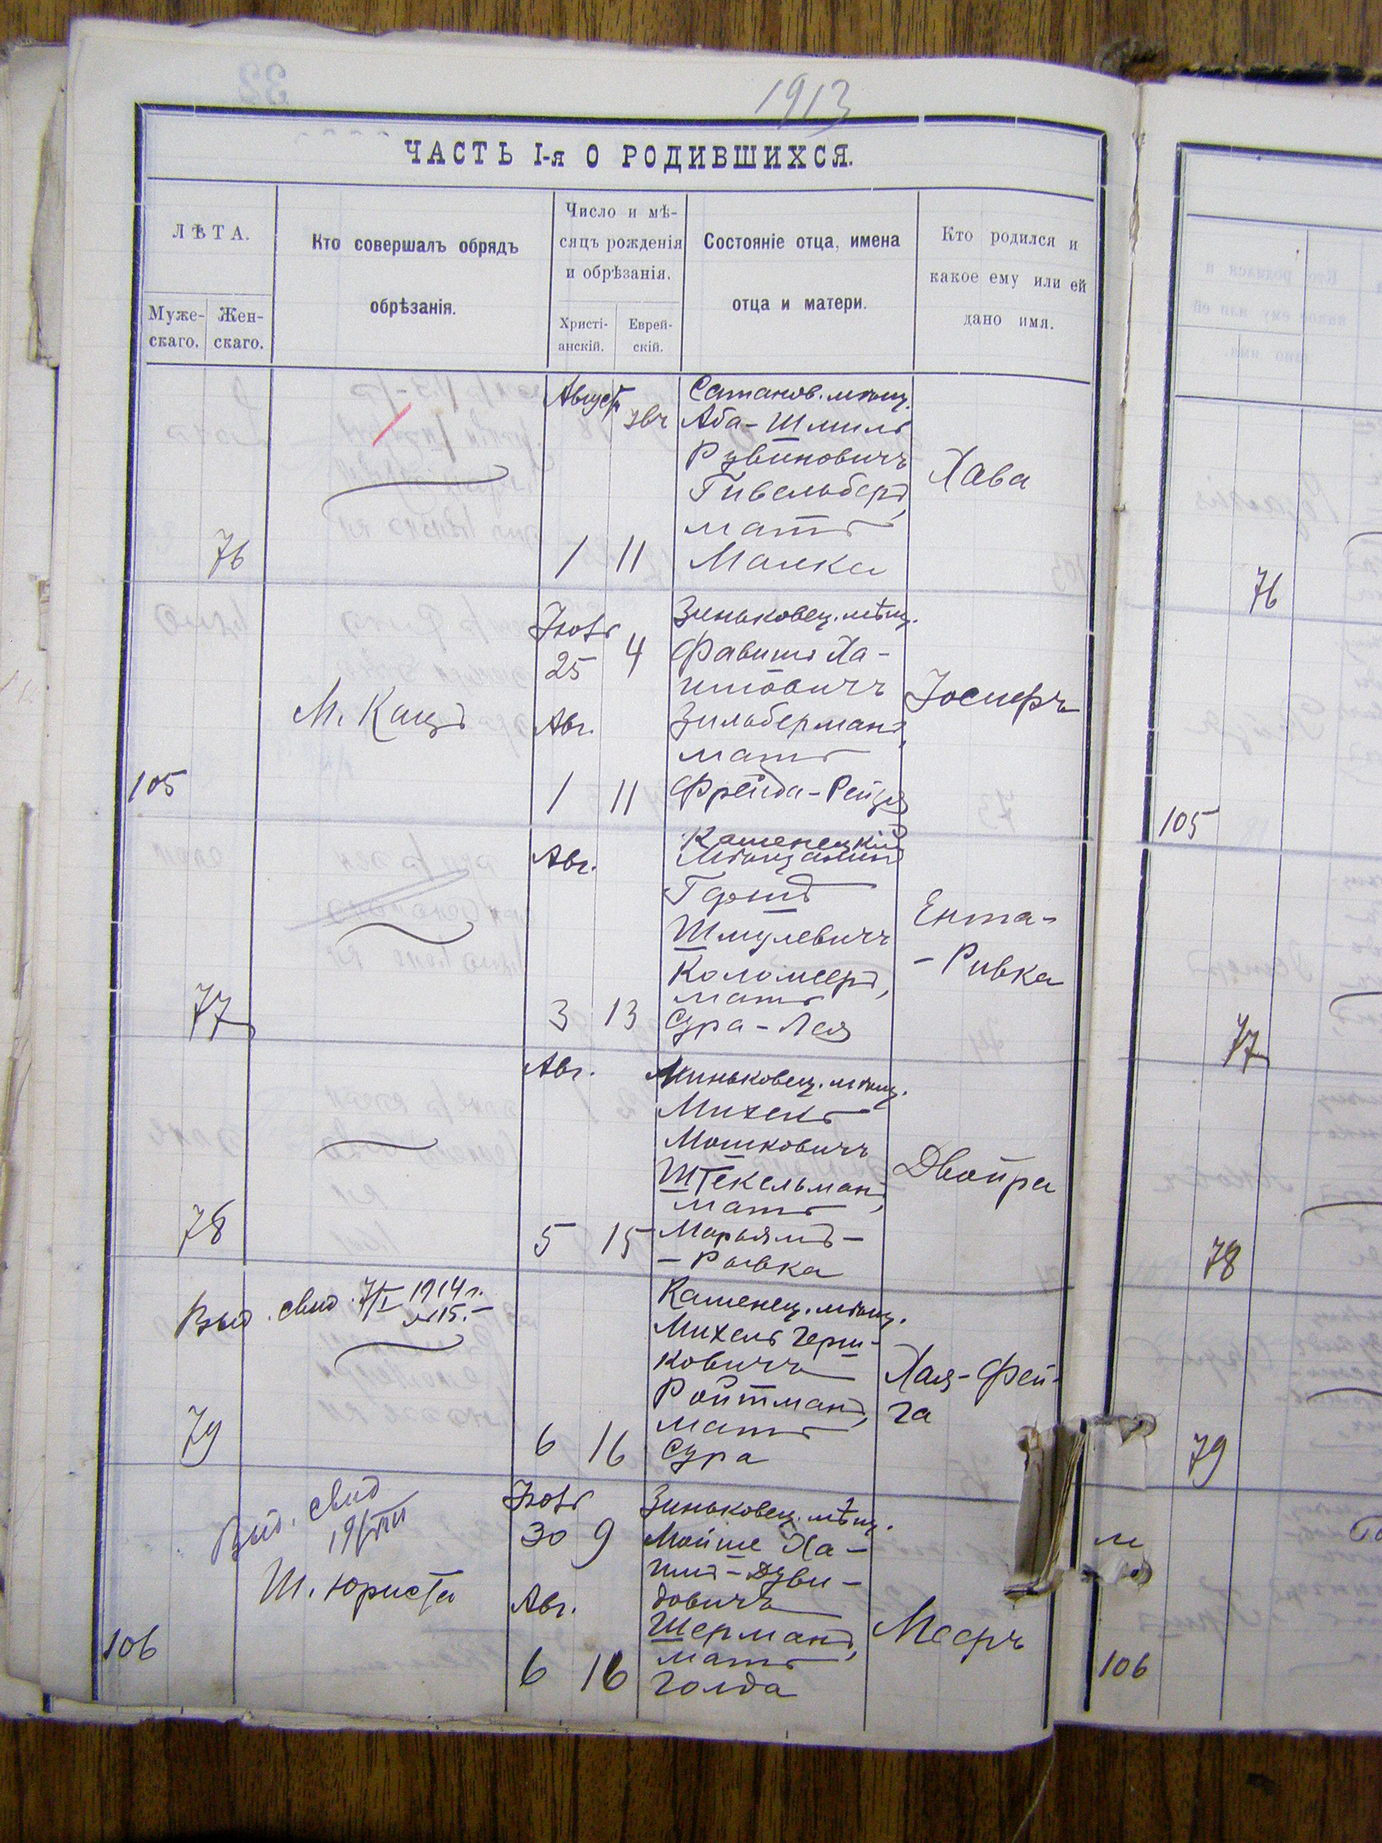 1913
ЧАСТЬ I-я О РОДИВШИХСЯ.
ЛѢТА.
Муже-
скаго.
Жен-
скаго.
Кто совершалъ обрядъ
обрѣзанія.
Число и мѣ-
сяцъ рожденія
и обрѣзанія.
Христі-
анскій.
Еврей-
скій.
Состояніе отца, имена
отца и матери.
Кто родился и
какое ему или ей
дано имя.
76
Август
1
11
Сатанов. мѣщ.
Аба-Шмиль
Рувиновичъ
Гивельберг,
мать
Малка
Хава
105
М. Кацъ
25
4
Авг.
1
11
Зиньковец. мѣщ.
Фавишъ Ха-
имовичъ
Зильберманъ,
мать
Фрейда-Рейзя
Іосифъ
77
Авг.
3
13
Каменецкій
мѣщанинъ
Гершъ
Шмулевичъ
Коломееръ,
мать
Сура-Лея
Ента-
-Ривка
78
Авг.
5
15
Миньковец. мѣщ.
Михель
Мошковичъ
Штекельман,
мать
Марьямъ-
-Рывка
Двойра
79
Выд. свид. 7/I 1914 г.
№15.-
6
16
Каменец. мѣщ.
Михель Герш-
ковичъ
Ройтманъ,
мать
Сура
Хая-Фей-
га
106
Выд. свид
19/VIII
Ш. Юриста
30
9
Авг.
6
16
Зиньковец. мѣщ.
Мойше Ха-
имъ-Дуви-
довичъ
Шерманъ,
мать
Голда
Мееръ
76
105
77
78
79
106